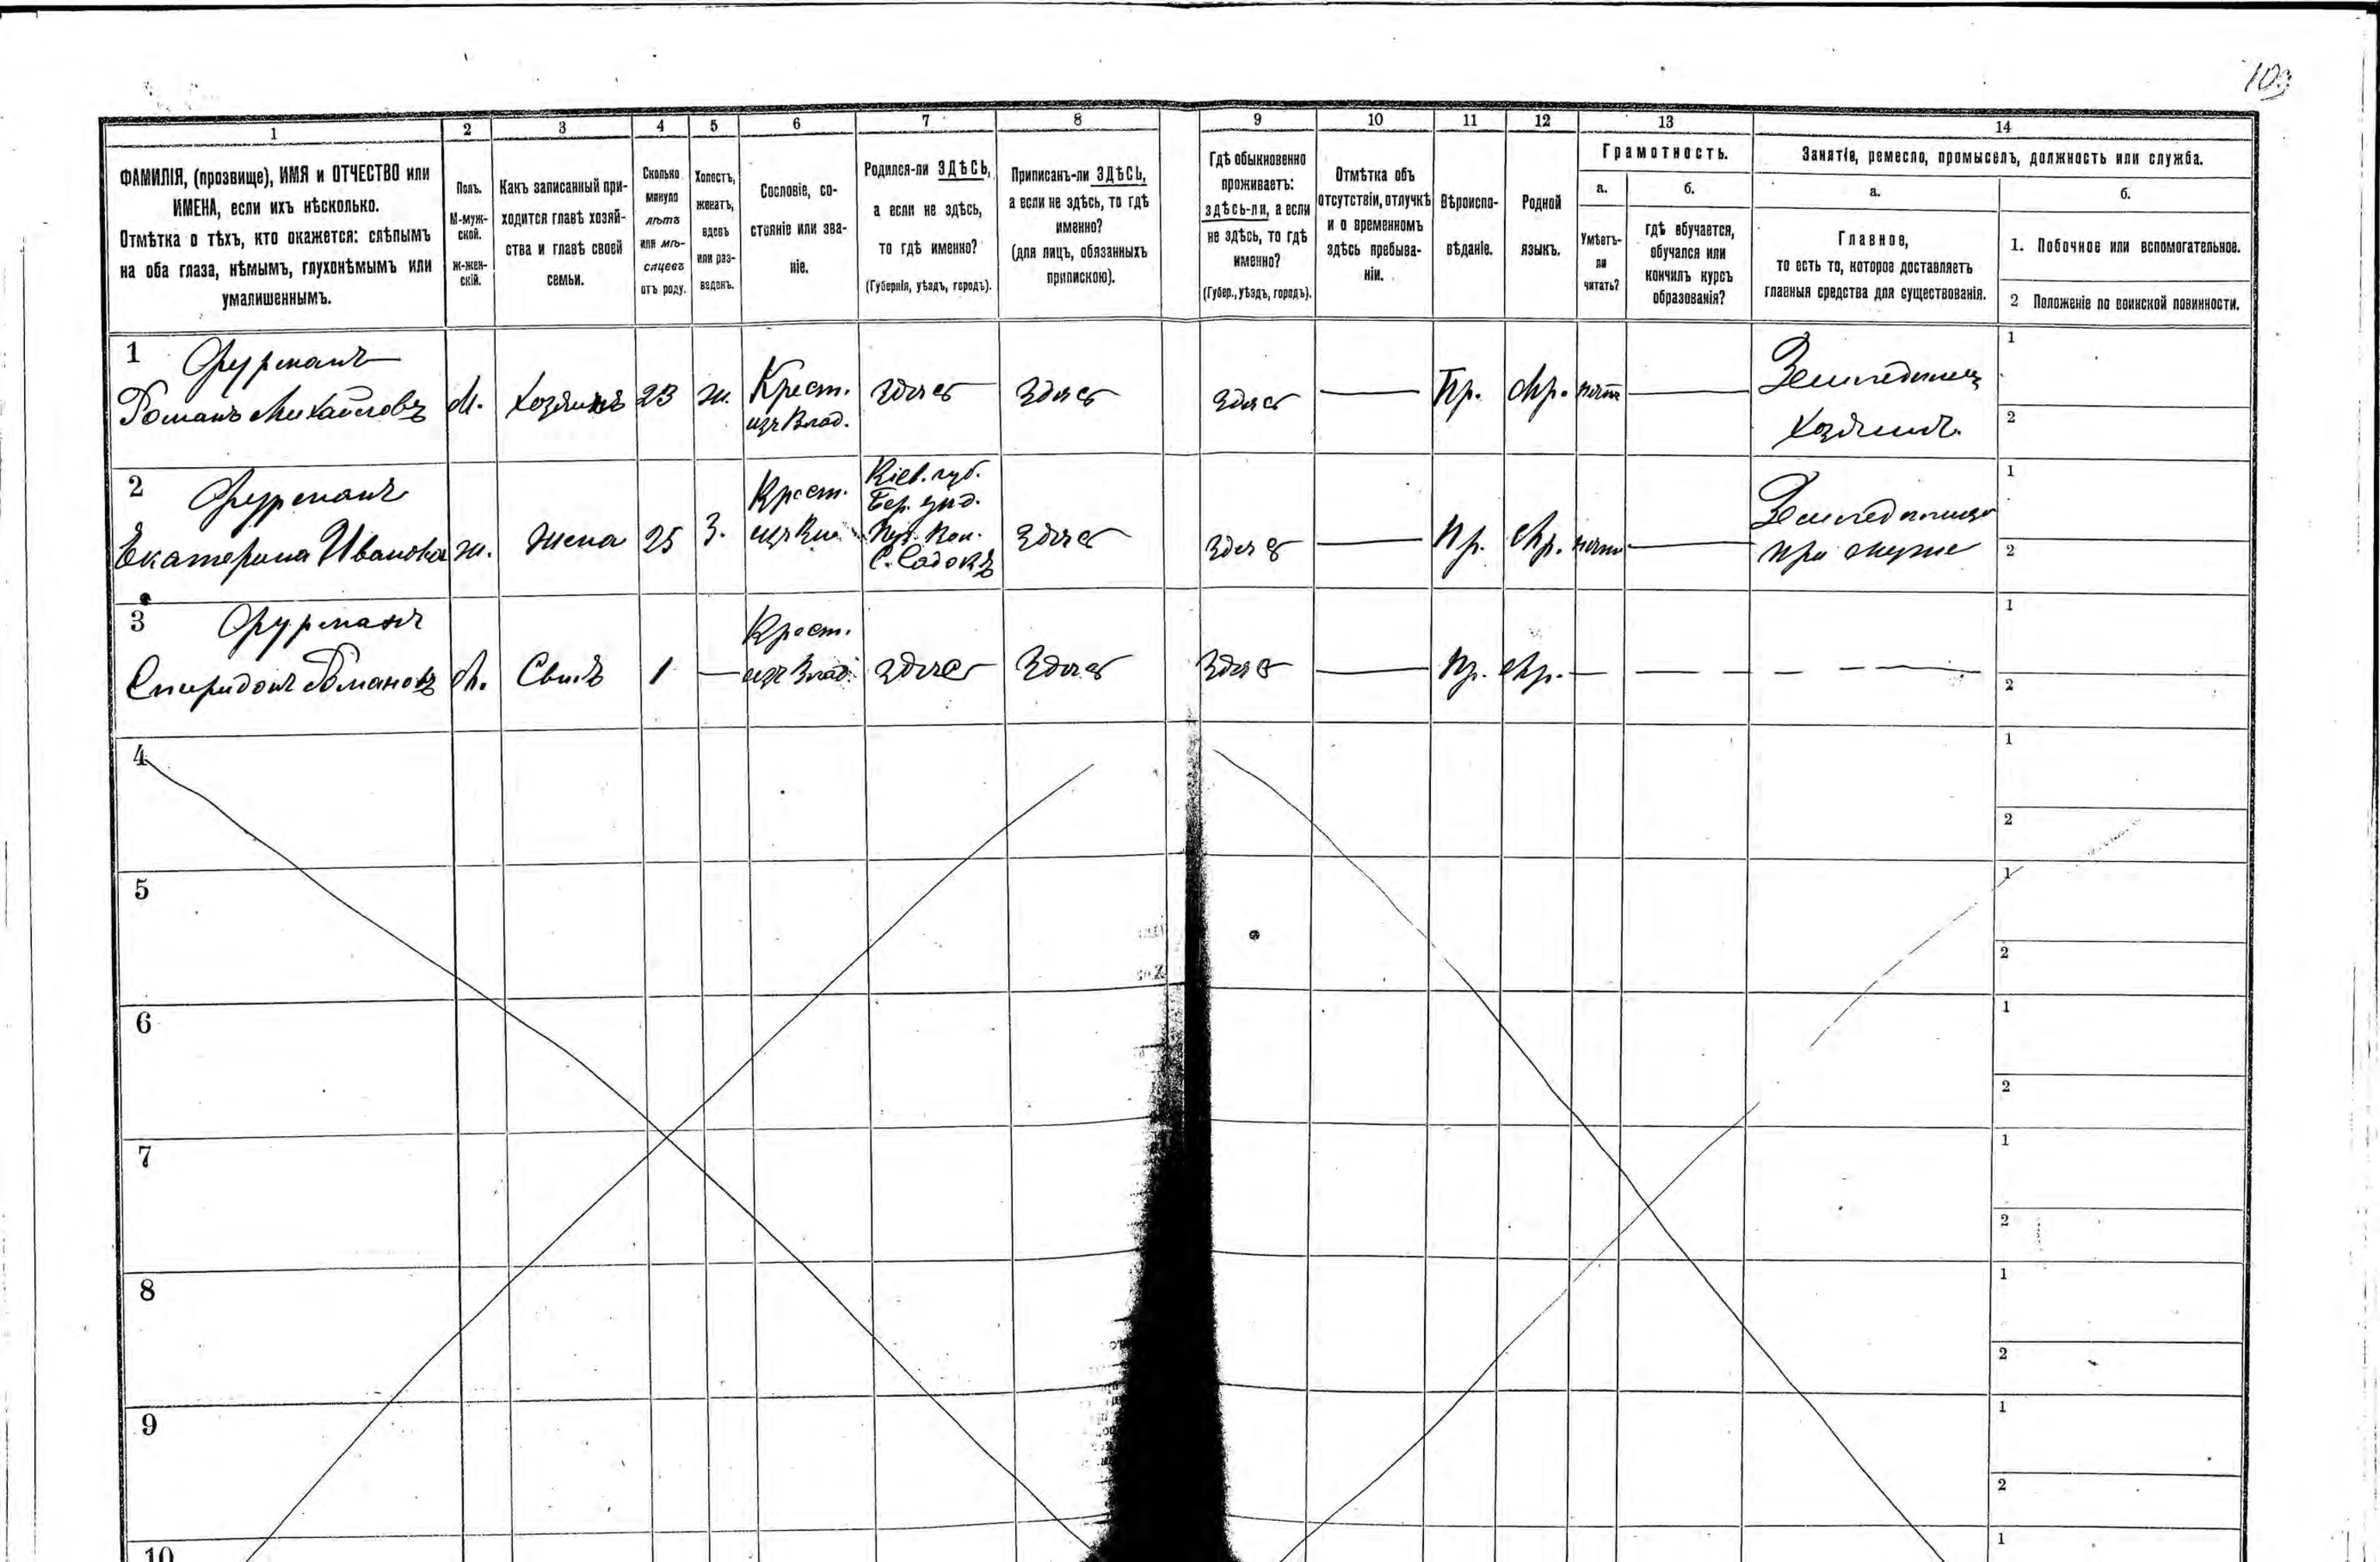 103
1
2
3
4
5
6
7
8
9
10
11
12
13
14
ФАМИЛІЯ, (прозвище), ИМЯ и ОТЧЕСТВО или
ИМЕНА, если ихъ нѣсколько.
Отмѣтка о тѣхъ, кто окажется: слѣпымъ
на оба глаза, нѣмымъ, глухонѣмымъ или
умалишеннымъ.
Полъ.
М-муж-
ской.
Ж-жен-
скій.
Какъ записанный при-
ходится главѣ хозяй-
ства и главѣ своей
семьи.
Сколько
минуло
лѣтъ
или мѣ-
сяцевъ
отъ роду.
Холостъ,
женатъ,
вдовъ
или раз-
веденъ.
Сословіе, со-
стояніе или зва-
ніе.
Родился-ли ЗДѢСЬ,
а если не здѣсь,
то гдѣ именно?
(Губернія, уѣздъ, городъ).
Приписанъ-ли ЗДѢСЬ,
а если не здѣсь, то гдѣ
именно?
(для лицъ, обязанныхъ
припискою).
Гдѣ обыкновенно
проживаетъ:
здѣсь-ли, а если
не здѣсь, то гдѣ
именно?
(Губер., уѣздъ, городъ).
Отмѣтка объ
отсутствіи, отлучкѣ
и о временномъ
здѣсь пребыва-
ніи.
Вѣроиспо-
вѣданіе.
Родной
языкъ.
Грамотность.
а.
Умѣетъ-
ли
читать?
б.
гдѣ обучается,
обучался или
кончилъ курсъ
образованія?
Занятіе, ремесло, промыселъ, должность или служба.
а.
Главное,
то есть то, которое доставляетъ
главныя средства для существованія.
б.
1. Побочное или вспомогательное.
2 Положеніе по воинской повинности.
1 Фурманъ
Романъ Михайловъ
М.
Хозяинъ
23
ж.
Крест.
изъ Влад.
здѣсь
здѣсь
здѣсь
Пр.
Мр.
нѣтъ
Земледѣлецъ
Хозяинъ.
1
2
2 Фурманъ
Екатерина Иванова
ж.
жена
25
З.
Крест.
Кіев. губ.
Бер. уѣз.
С. Садокъ
здѣсь
здѣсь
Пр.
Мр.
нѣтъ
Земледѣлица
при мужѣ
1
2
3 Фурманъ
Спиридонъ Романовъ
М.
Сынъ
1
Крест.
изъ Влад.
здѣсь
здѣсь
здѣсь
Пр.
Мр.
1
2
4
1
2
5
1
2
6
1
2
7
1
2
8
1
2
9
1
2
10
1